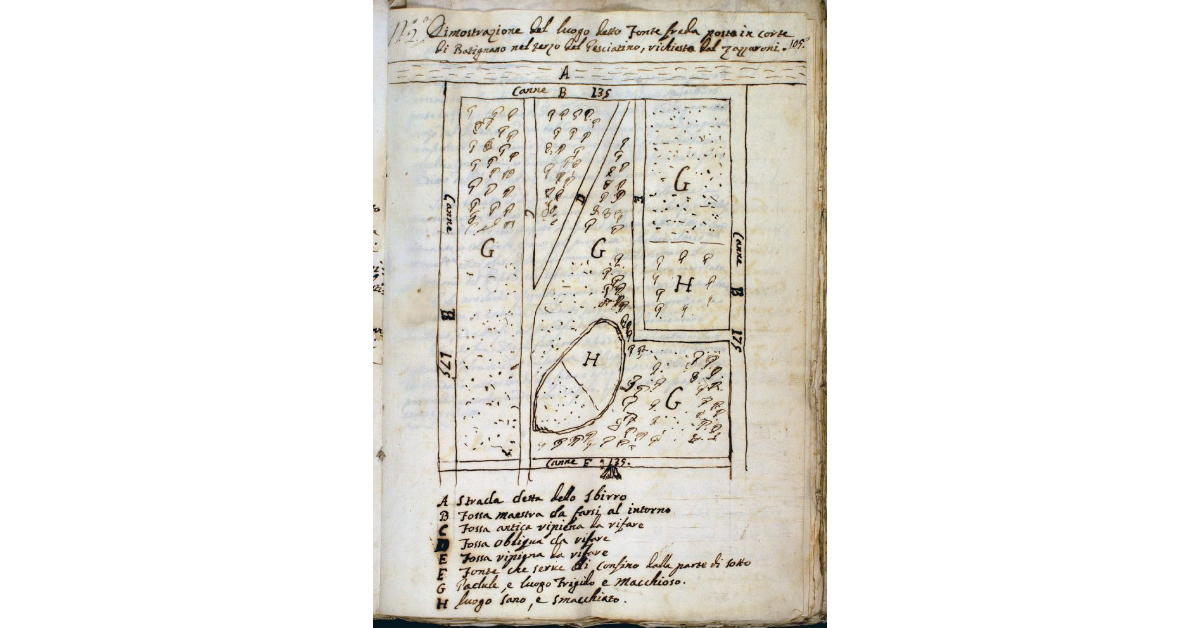 Dimostrazione del luogo detto Fonte freda posta in corte 105.
di Batignano nel terzo del Pesciatino, richiesta dal Zazzaroni.
A
Canne B 135
G
D
E
Canne
G
G
Canne
H
B
B
175
H
175
G
Canne F 135.
A Strada detta dello Sbirro
B Fossa maestra da farsi al intorno
C Fossa antica ripiena da rifare
D Fossa obliqua da rifare
E Fossa ripiena da rifare
F Fonte che serve di Confino dalla parte di sotto
G Padule, e luogo Frigido e Macchioso.
H luogo sano, e smacchiato.